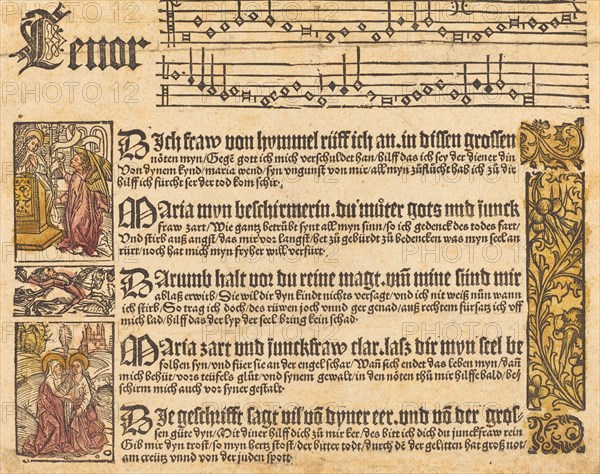 Tenor
Dich fraw von hymmel rüff ich an. in dissen grossen
nöten myn/Gegē gott ich mich verschuldet han/hilff das ich sey der diener din
Von dynem kynd/maria wend/syn vngunst von mir/all myn züflücht hab ich zů dir
hilff ich fürcht ser der tod kom schir.
Maria myn beschirmerin. du můter gots und junck
fraw zart/Wie gantz betrübt synt all my sinn/so ich gedenck des todes fart/
Vnd stirb auß angst/das mir vor langst/het zů gebürdt zů bedencken was myn seel an
rürt/noch hat mich myn fryher will verfürt.
Darumb halt vor du reine magt. vm̄ mine sünd mir
ablaß erwirb/Sie wil dir dyn kindt nichts versagt/vnd ich nit weiß nūn wann
ich stirb/So trag ich doch/des rüwen joch vnnd ger genad/auß rechtem fürsatz ich vff
mich lad/hilff das der lyp der seel bring kein schad.
Maria zart und junckfraw clar. lasz dir myn seel be
folhen syn/vnd füer sie an der engel schar/Wañ sich endet das leben myn/dañ
mich behüt/vors teüfels glüt/vnd synem gewalt/in den nöten thů mir hilffe bald/be/
schirm mich auch vor syner gestalt.
Die geschrifft sagt vil vō dyner eer. und vō der gros/
sen güte dyn/Mit diner hilff dich zů mir ker/des bitt ich dich du junckfraw rein
Gib mir dyn trost/so myn hertz stost/der bitter todt/durch dē der gelitten hat groß not/
am creütz vnnd von der juden spott.
PHOTO 12